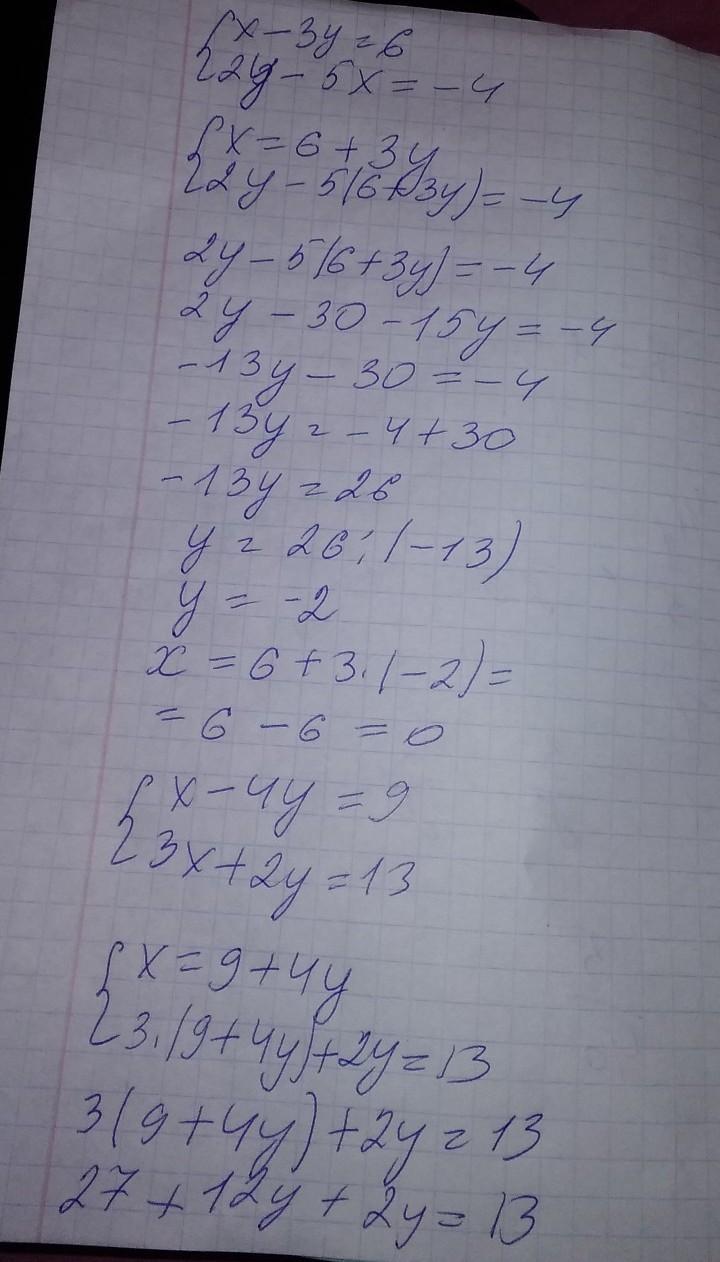 {x-3y=6
{2y-5x=-4
{x=6+3y
{2y-5(6+3y)=-4
2y-5(6+3y)=-4
2y-30-15y=-4
-13y-30=-4
-13y=-4+30
-13y=26
y=26:(-13)
y=-2
x=6+3·(-2)=
=6-6=0
{x-4y=9
{3x+2y=13
{x=9+4y
{3·(9+4y)+2y=13
3(9+4y)+2y=13
27+12y+2y=13